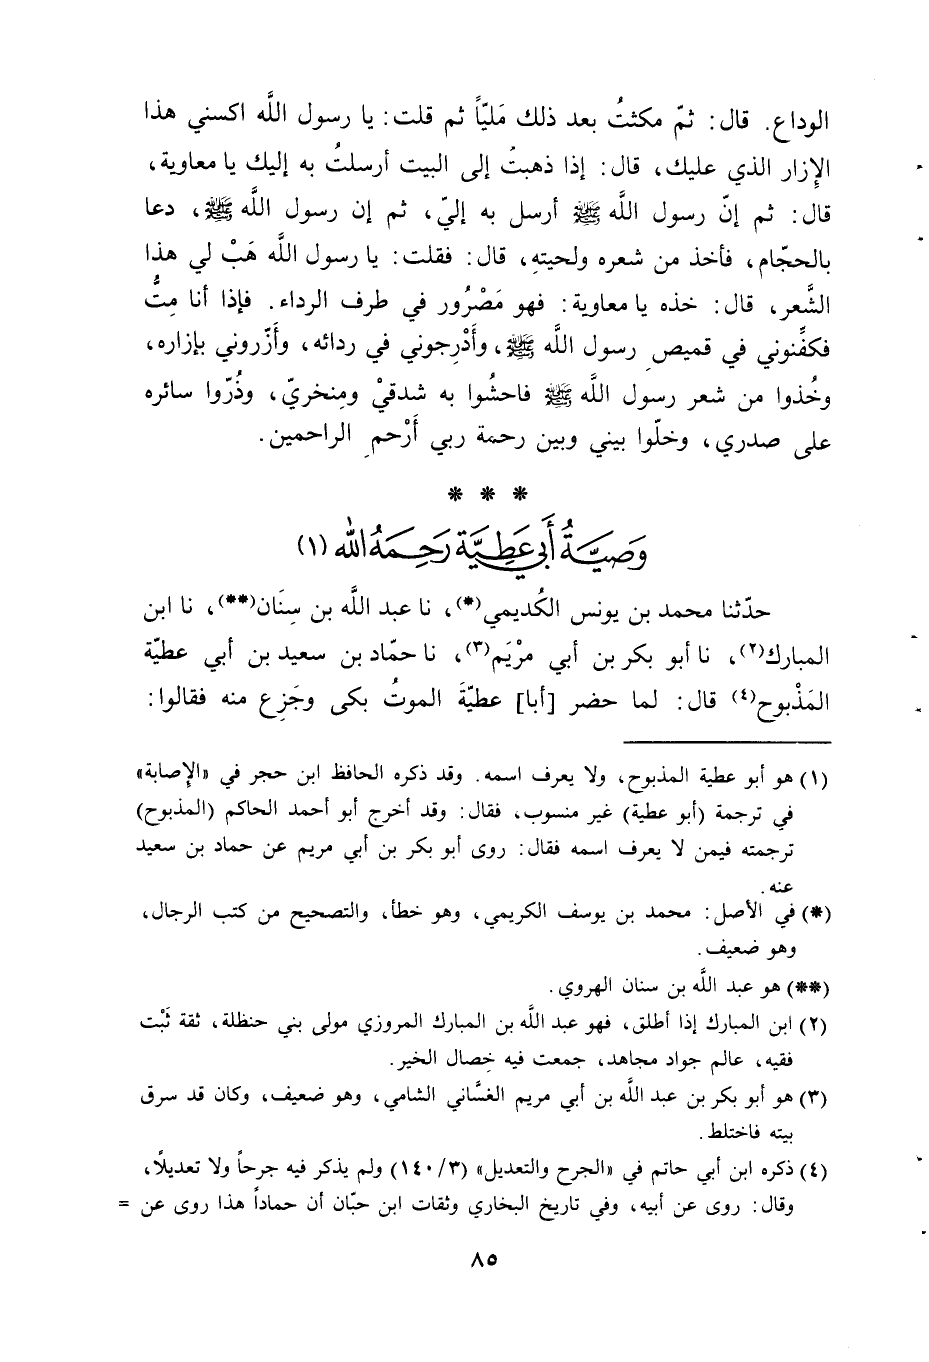 الوداع. قال: ثمّ مكثتُ بعد ذلك مَليّاً ثم قلت: يا رسول اللَّه اكسني هذا
الإِزار الذي عليك، قال: إذا ذهبتُ إلى البيت أرسلتُ به إليك يا معاوية،
قال: ثم إنّ رسول اللَّه ﷺ أرسل به إليّ، ثم إن رسول اللَّه ﷺ، دعا
بالحجّام، فأخذ من شعره ولحيتهِ، قال: فقلت: يا رسول اللَّه هَبْ لي هذا
الشَّعر، قال: خذه يا معاوية: فهو مَصْرُور في طرف الرداء. فإذا أنا مِتُّ
فكفِّنوني في قميصِ رسول اللَّه ﷺ، وأَدْرِجوني في ردائه، وأَزّروني بإزاره،
وخُذوا من شعر رسول اللَّه ﷺ فاحشُوا به شدقيْ ومِنخريّ، وذُرّوا سائره
على صدري، وخلّوا بيني وبين رحمة ربي أَرْحمِ الراحمين.
* * *
وَصِيَّةُ أَبي عَطِيَّة رَحِمَهُ اللّٰه (١)
حدّثنا محمد بن يونس الكُديمي(*)، نا عبد اللَّه بن سِنَان(**)، نا ابن
المبارك(٢)، نا أبو بكر بن أبي مرْيَم(٣)، نا حمّاد بن سعيد بن أبي عطيّة
المَذْبوح(٤) قال: لما حضر [أبا] عطيّةَ الموتُ بكى وجَزِع منه فقالوا:
(١) هو أبو عطية المذبوح، ولا يعرف اسمه. وقد ذكره الحافظ ابن حجر في «الإِصابة»
في ترجمة (أبو عطية) غير منسوب، فقال: وقد أخرج أبو أحمد الحاكم (المذبوح)
ترجمته فيمن لا يعرف اسمه فقال: روى أبو بكر بن أبي مريم عن حماد بن سعيد
عنه.
(*) في الأصل: محمد بن يوسف الكريمي، وهو خطأ، والتصحيح من كتب الرجال،
وهو ضعيف.
(**) هو عبد اللَّه بن سنان الهروي.
(٢) ابن المبارك إذا أطلق، فهو عبد اللَّه بن المبارك المروزي مولى بني حنظلة، ثقة ثَبْت
فقيه، عالم جواد مجاهد، جمعت فيه خصال الخير.
(٣) هو أبو بكر بن عبد اللَّه بن أبي مريم الغسَّاني الشامي، وهو ضعيف، وكان قد سرق
بيته فاختلط.
(٤) ذكره ابن أبي حاتم في «الجرح والتعديل» (٣/ ١٤٠) ولم يذكر فيه جرحاً ولا تعديلاً،
وقال: روى عن أبيه، وفي تاريخ البخاري وثقات ابن حبّان أن حماداً هذا روى عن =
٨٥